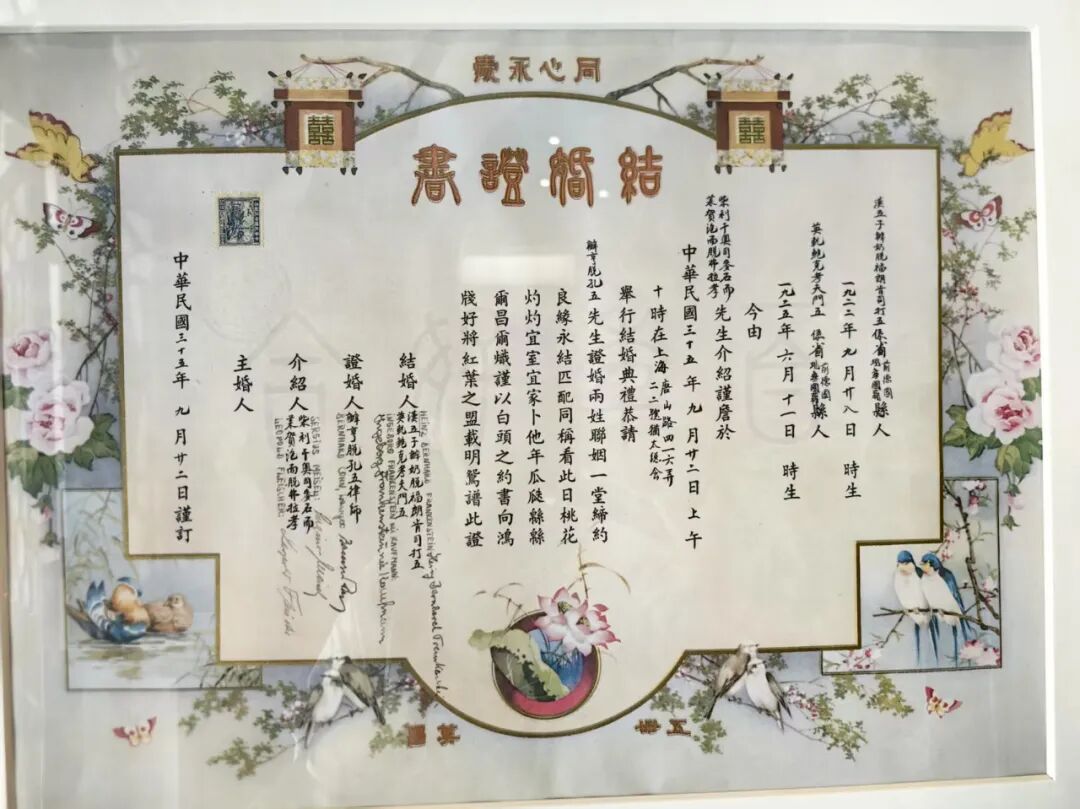 同心永愛
囍
囍
結婚證書
漢五子辦奶脫福朗肯司打五係省前德國縣人
一九二二年九月廿八日 時生
英凱鮑克孝夫門五 係省前德國縣人
一九二五年六月十一日 時生
今由
柴利干奧司麥石而
萊賀泡而脫弗拉孝
先生介紹謹詹於
中華民國三十五年九月廿二日上午
十時在上海唐山路四一六弄
二二號猶太總會
舉行結婚典禮恭請
辦亨脫孔五先生證婚兩姓聯姻一堂締約
良緣永結匹配同稱看此日桃花
灼灼宜室宜家卜他年瓜瓞緜緜
爾昌爾熾謹以白頭之約書向鴻
牋好將紅葉之盟載明鴛譜此證
結婚人
HEINZ BERNHARD FRANKENSTEIN
漢五子辦奶脫福朗肯司打五
英凱鮑克孝夫門五
INGEBORG FRANKENSTEIN né KAUFMANN
Ingeborg Frankenstein né Kaufmann
證婚人
辦亨脫孔五律師
BERNHARD COHN, Lawyer
介紹人
柴利干奧司麥石而
萊賀泡而脫弗拉孝
LEOPOLD FLEISCHER
主婚人
中華民國三十五年 九月廿二日謹訂